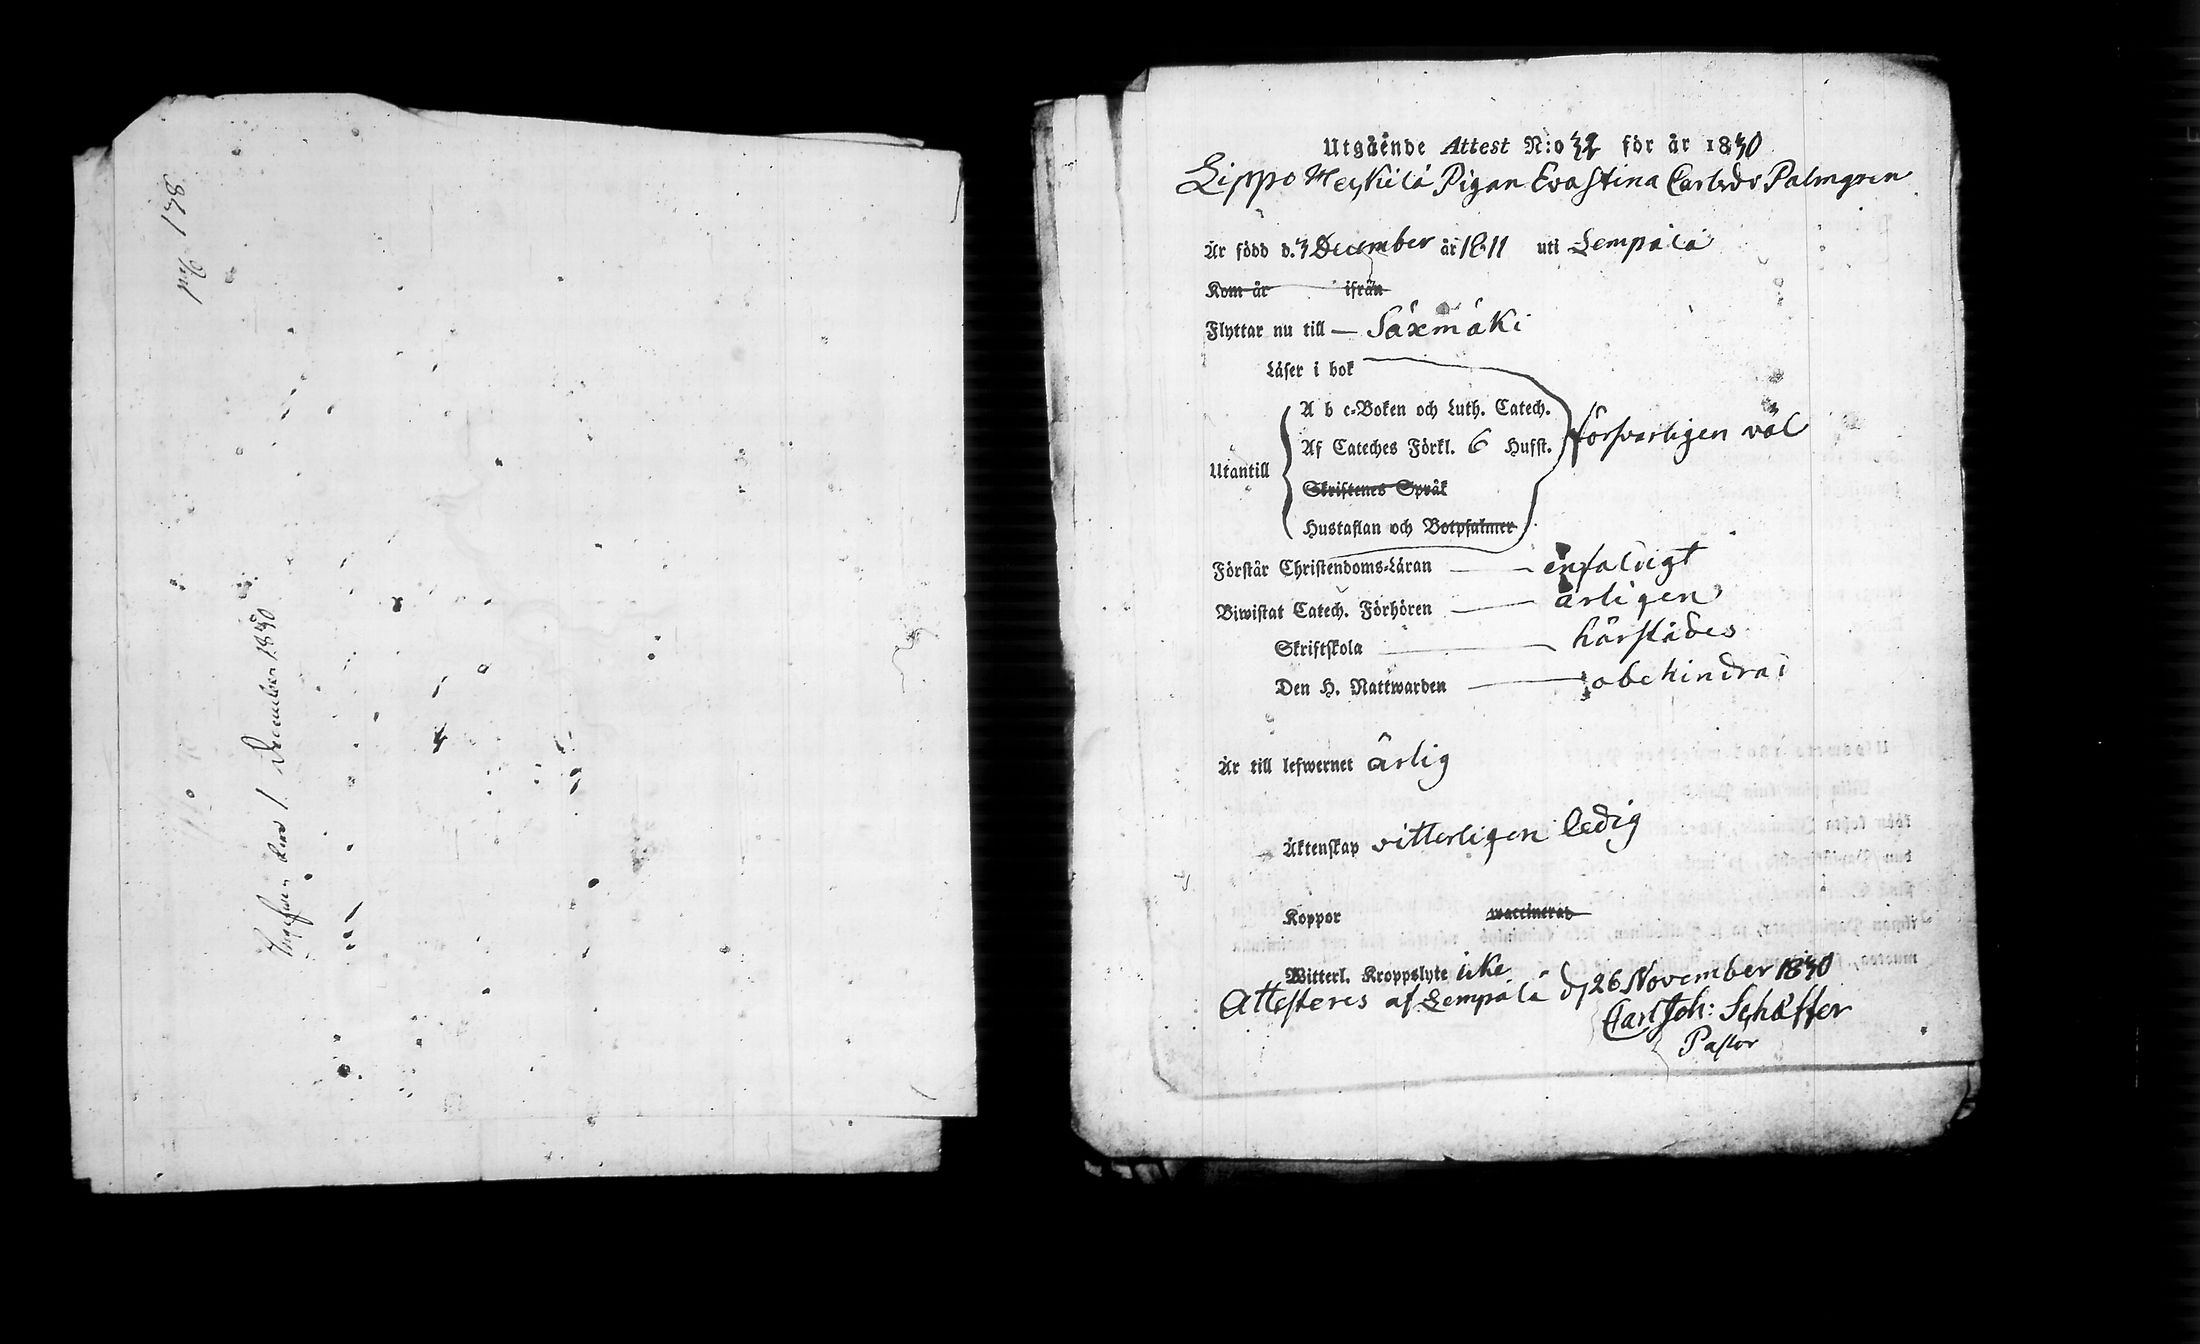 N:o 178
Ingifwen den 1 December 1830
Utgående Attest N:o 32 för år 1830
Lippo Heikkilä Pigan Eva Stina Carlsdr Palmgren
Är född d. 3 December år 1811 uti Lempälä
Kom år ifrån
Flyttar nu till — Säxmäki
Läser i bok
A b c-Boken och Luth. Catech.
Af Cateches Förkl. 6 Hufst. försvarligen väl
Utantill
Skriftenes Språk
Hustaflan och Botpsalmer
Förstår Christendoms-Läran — enfaldigt
Biwistat Catech. Förhören — årligen
Skriftskola — härstädes
Den H. Nattwarden — obehindrad
Är till lefwernet ärlig
Äktenskap vitterligen ledig
Koppor vaccinerad
Witterl. Kroppslyte icke
Attesteras af Lempälä d. 26 November 1830
Carl Joh: Schäffer
Pastor